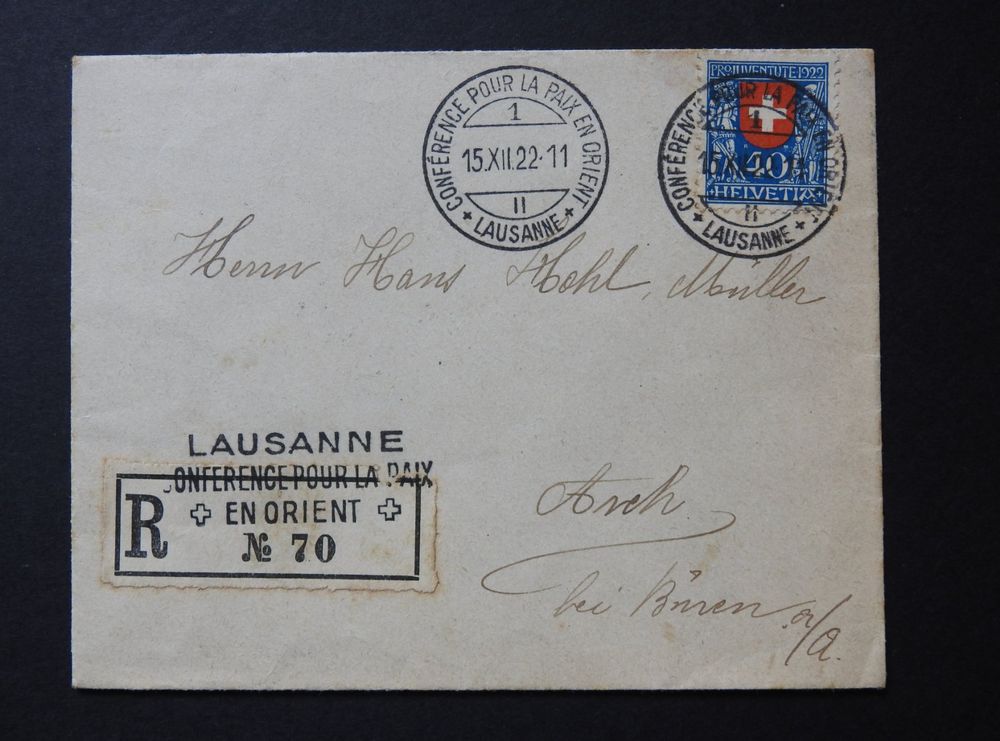 CONFÉRENCE POUR LA PAIX EN ORIENT
1
15.XII.22-11
II
+ LAUSANNE +
PRO JUVENTUTE 1922
40
HELVETIA
CONFÉRENCE POUR LA PAIX EN ORIENT
1
15.XII.22-11
II
+ LAUSANNE +
Herrn Hans Müller
LAUSANNE
CONFERENCE POUR LA PAIX
EN ORIENT
R
№ 70
Arch
bei Büren a/A.